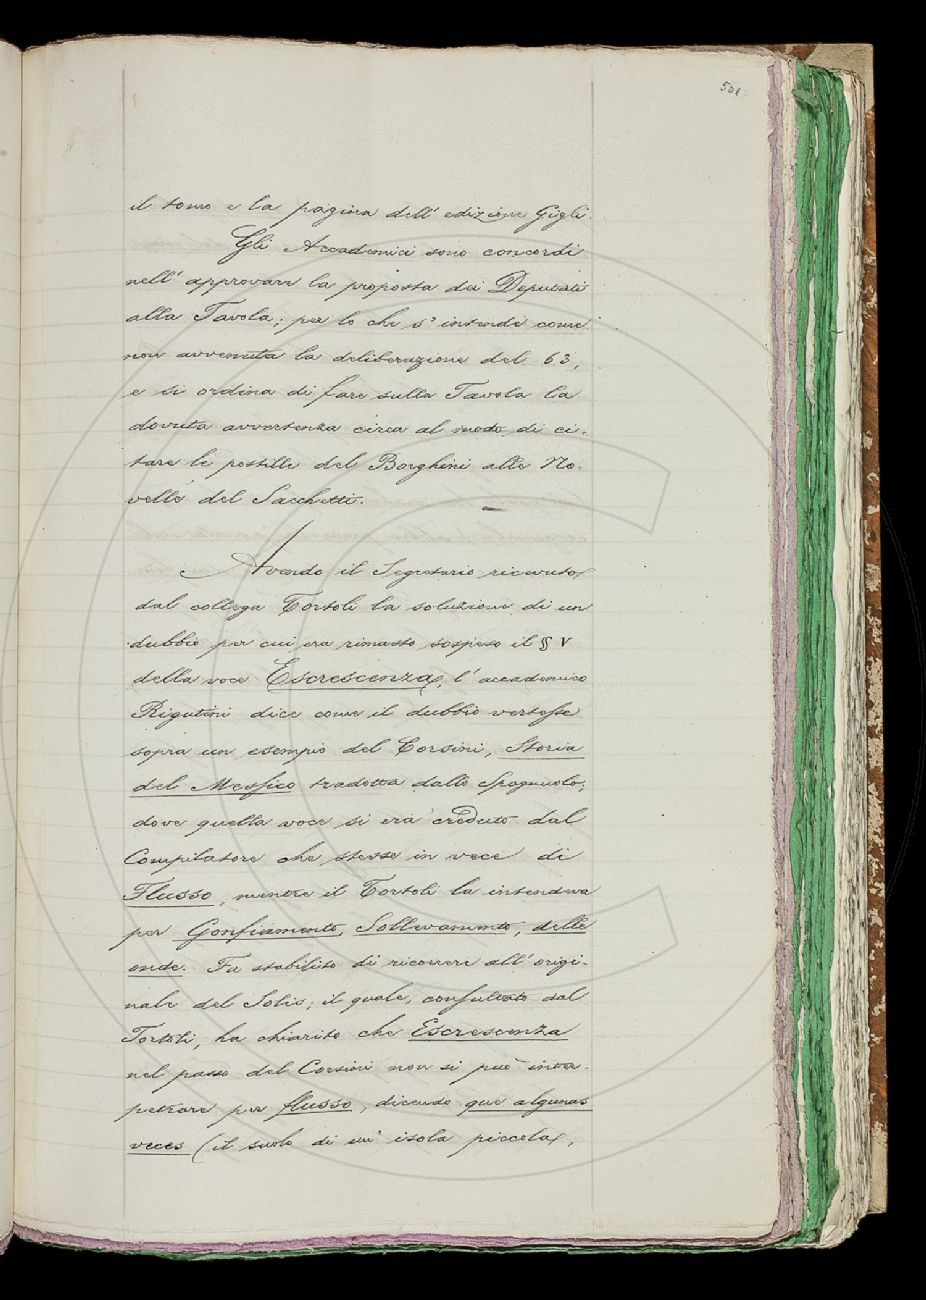 501
il tomo e la pagina dell' edizione Gigli.
Gli Accademici sono concordi
nell' approvare la proposta dei Deputati
alla Tavola; per lo che s' intende come
non avvenuta la deliberazione del 63,
e si ordina di fare sulla Tavola la
dovuta avvertenza circa al modo di ci-
tare le postille del Borghini alle No-
velle del Sacchetti.
Avendo il Segretario ricevuto
dal collega Tortoli la soluzione di un
dubbio per cui era rimasto sospeso il § V
della voce Escrescenza, l' accademico
Rigutini dice come il dubbio vertesse
sopra un esempio del Corsini, Storia
del Messico tradotta dallo Spagnuolo,
dove quella voce si era creduto dal
Compilatore che stesse in vece di
Flusso, mentre il Tortoli la intendeva
per Gonfiamento, Sollevamento, delle
onde. Fu stabilito di ricorrere all' origi-
nale del Solis; il quale, consultato dal
Tortoli, ha chiarito che Escrescenza
nel passo del Corsini non si può inter-
petrare per flusso, dicendo que algunas
veces (il suolo di un' isola piccola,